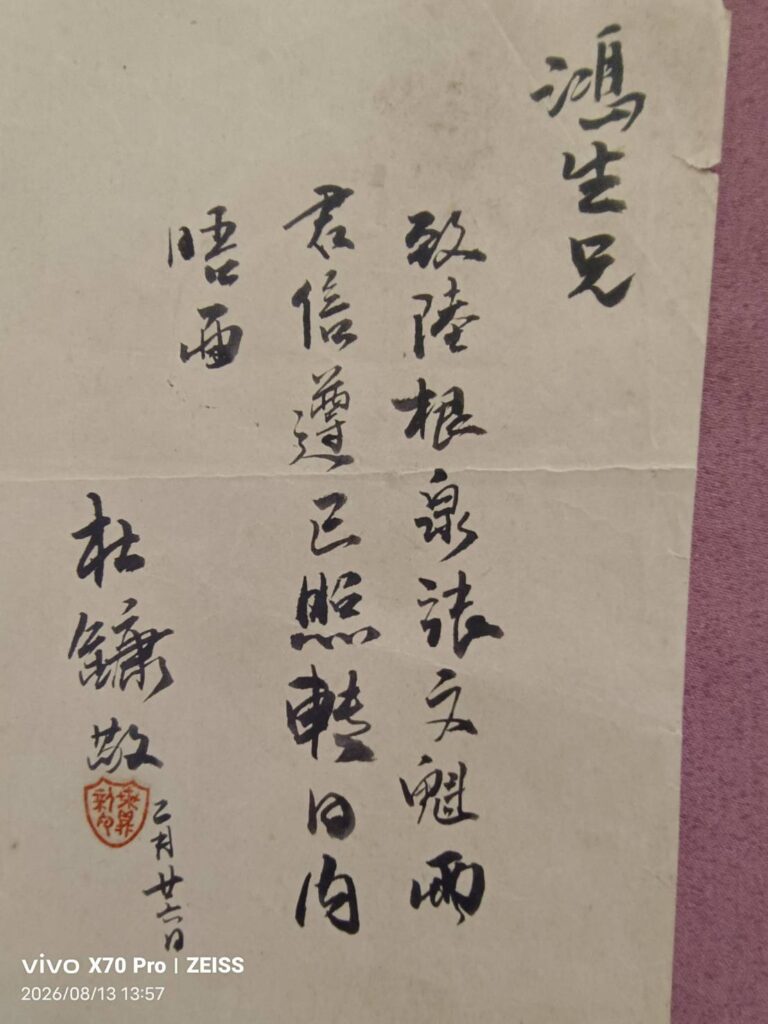 鴻生兄
致陸根泉張文魁兩
君信遵已照轉日内
晤面
杜鏞敬
二月廿六日
vivo X70 Pro | ZEISS
2026/08/13 13:57